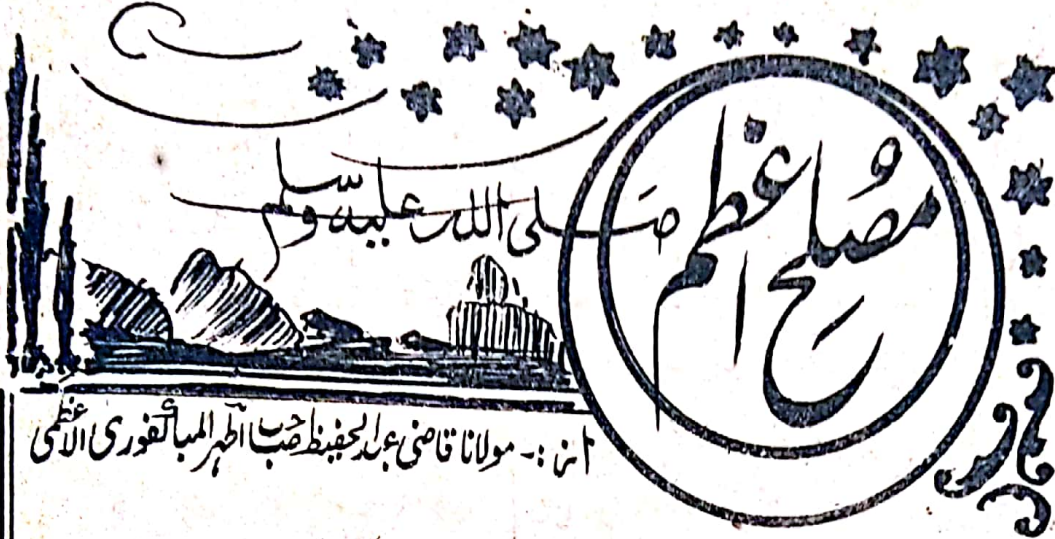 مصلح اعظم
صلی اللہ علیہ وسلم
از :- مولانا قاضی عبدالحفیظ صاحب اطہر المبارکفوری الاعظمی